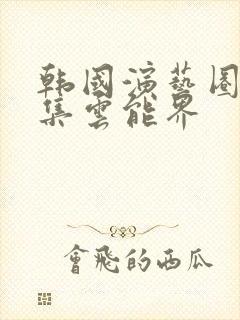 韩國演藝圈
集雲能界
會飛的西瓜